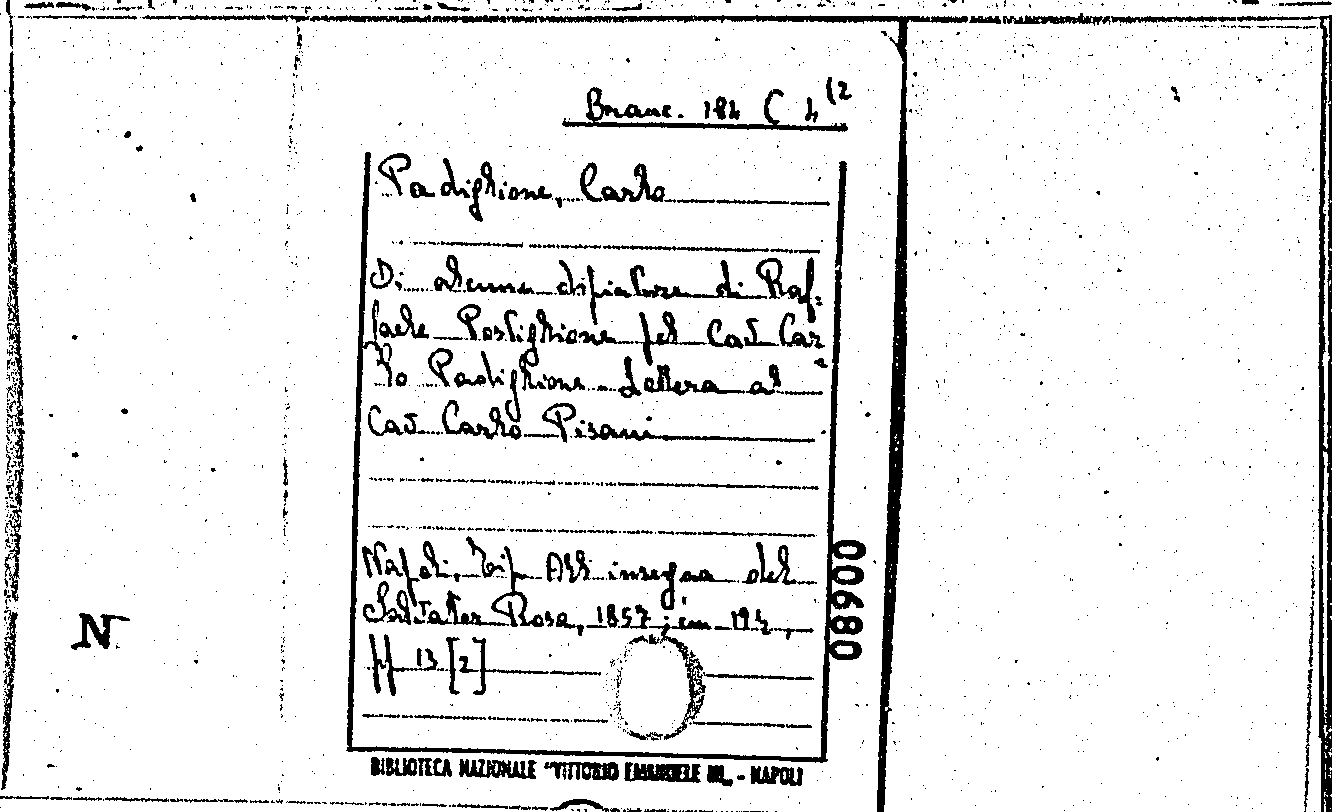 Branc. 184 C 4 (2
Padiglione, Carlo
Di alcune dipinture di Raf=
faele Postiglione pel Cav Car
lo Padiglione. Lettera al
Cav Carlo Pisani
Napoli, Tip. All'insegna del
Salvator Rosa, 1857; in 194,
pp 13 [2]
00680
N
BIBLIOTECA NAZIONALE "VITTORIO EMANUELE III„ - NAPOLI